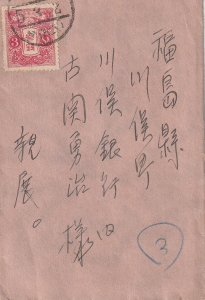 福島縣
川俣町
川俣銀行内
古関勇治様
親展。
3
3